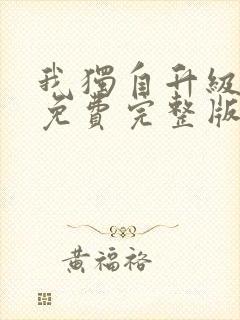 我獨自升級
免費完整版
黃福裕